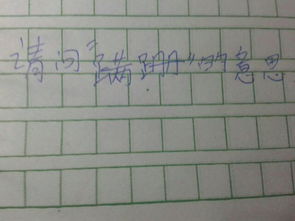 请问"蹒跚"的意思